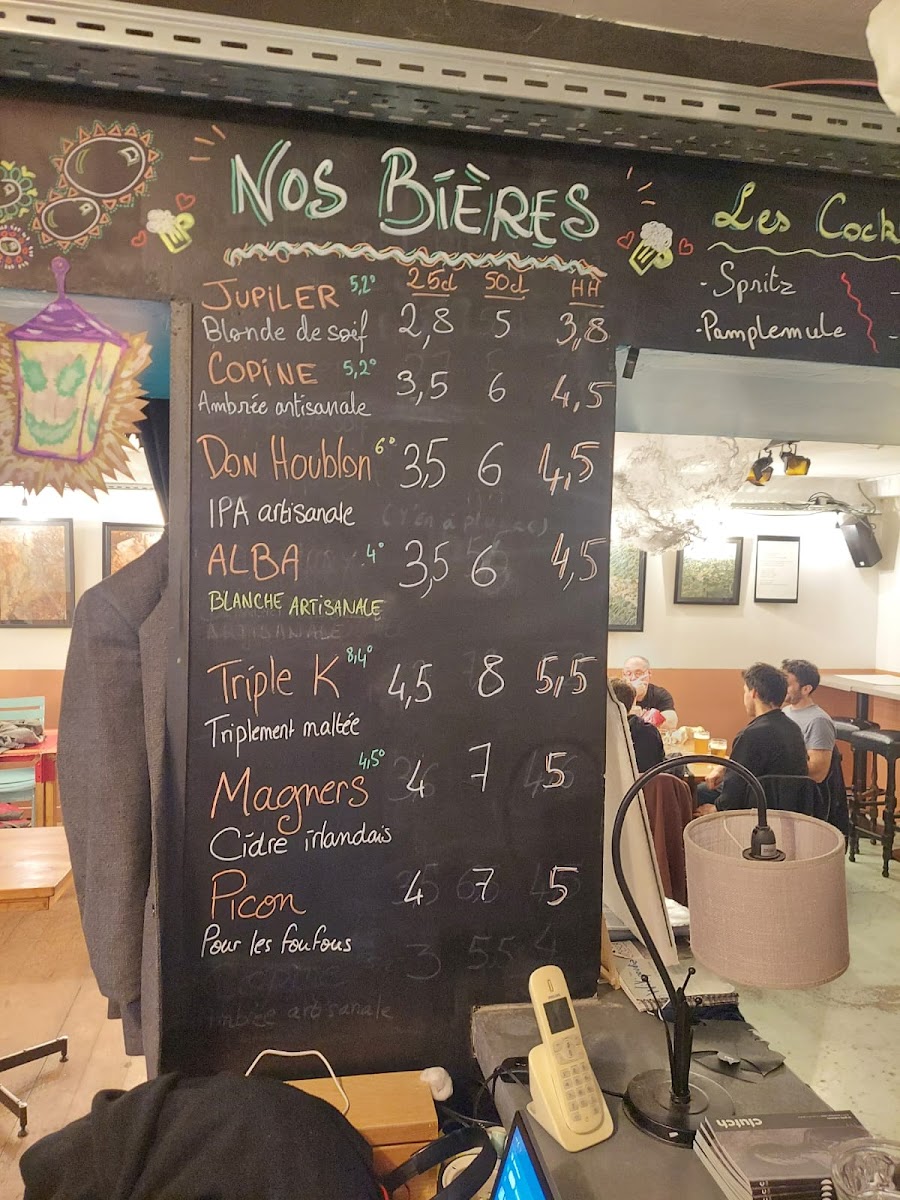 Nos Bières
25cl 50cl HH
Jupiler 5,2° 2,8 5 3,8
Blonde de soif
Copine 5,2° 3,5 6 4,5
Ambrée artisanale
Don Houblon 6° 3,5 6 4,5
IPA artisanale
ALBA 4° 3,5 6 4,5
BLANCHE ARTISANALE
Triple K 8,4° 4,5 8 5,5
Triplement maltée
Magners 4,5° 4 7 5
Cidre irlandais
Picon 4 7 5
Pour les foufous
3 5,5 4
Copine
Ambrée artisanale
Les Cock
- Spritz
- Pamplemule
clutch